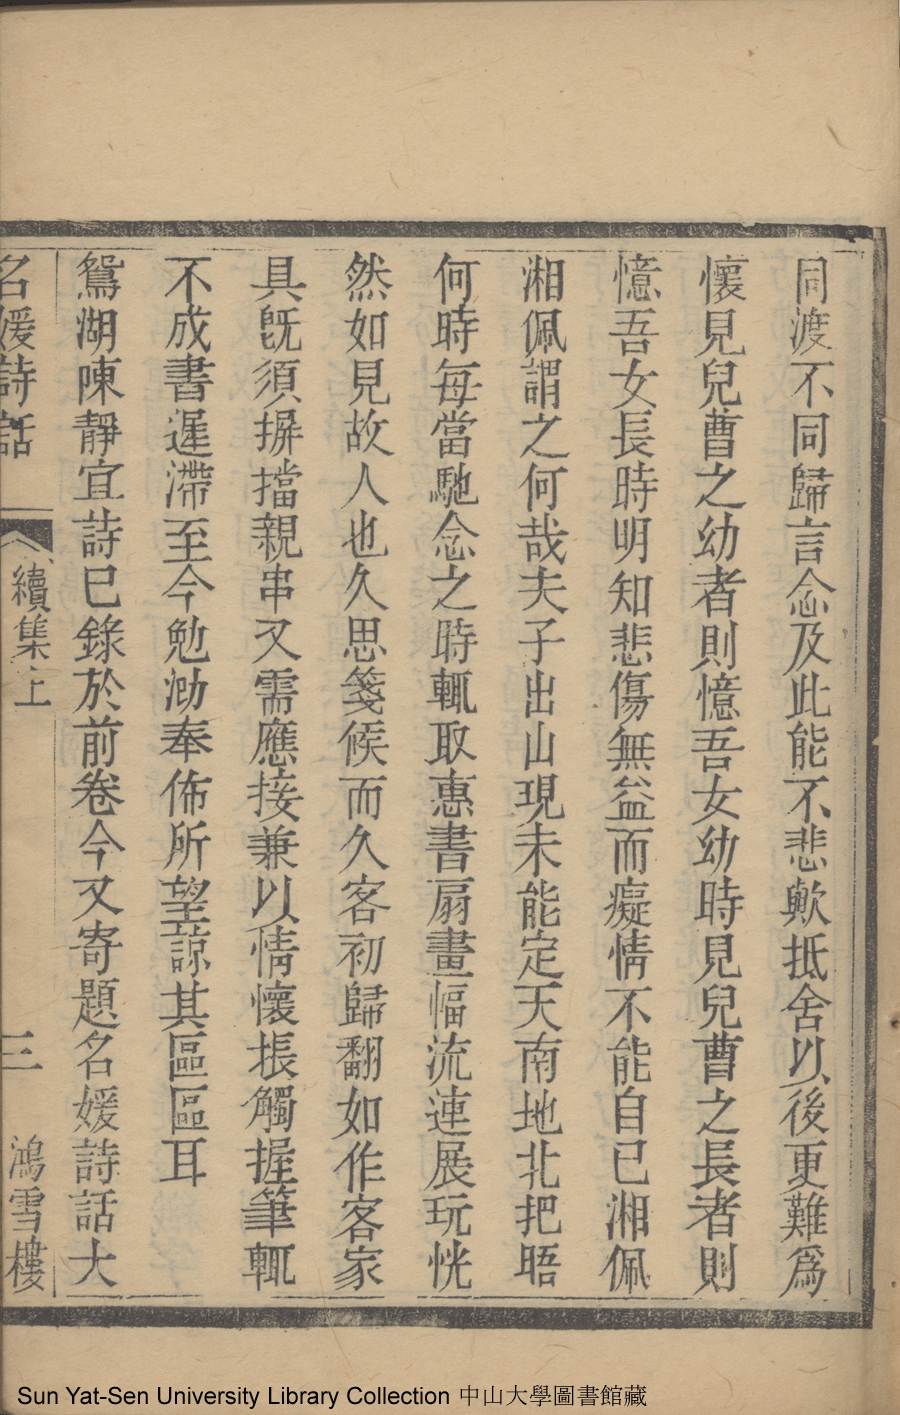 同渡不同歸言念及此能不悲歟抵舍以後更難爲
懷見兒曹之幼者則憶吾女幼時見兒曹之長者則
憶吾女長時明知悲傷無益而癡情不能自已湘佩
湘佩謂之何哉夫子出山現未能定天南地北把晤
何時每當馳念之時輒取惠書扇畫幅流連展玩恍
然如見故人也久思箋候而久客初歸翻如作客家
具旣須摒擋親串又需應接兼以情懷棖觸握筆輒
不成書遲滯至今勉泐奉佈所望諒其區區耳
鴛湖陳靜宜詩已錄於前卷今又寄題名媛詩話大
名媛詩話
續集上
三
鴻雪樓
Sun Yat-Sen University Library Collection 中山大學圖書館藏